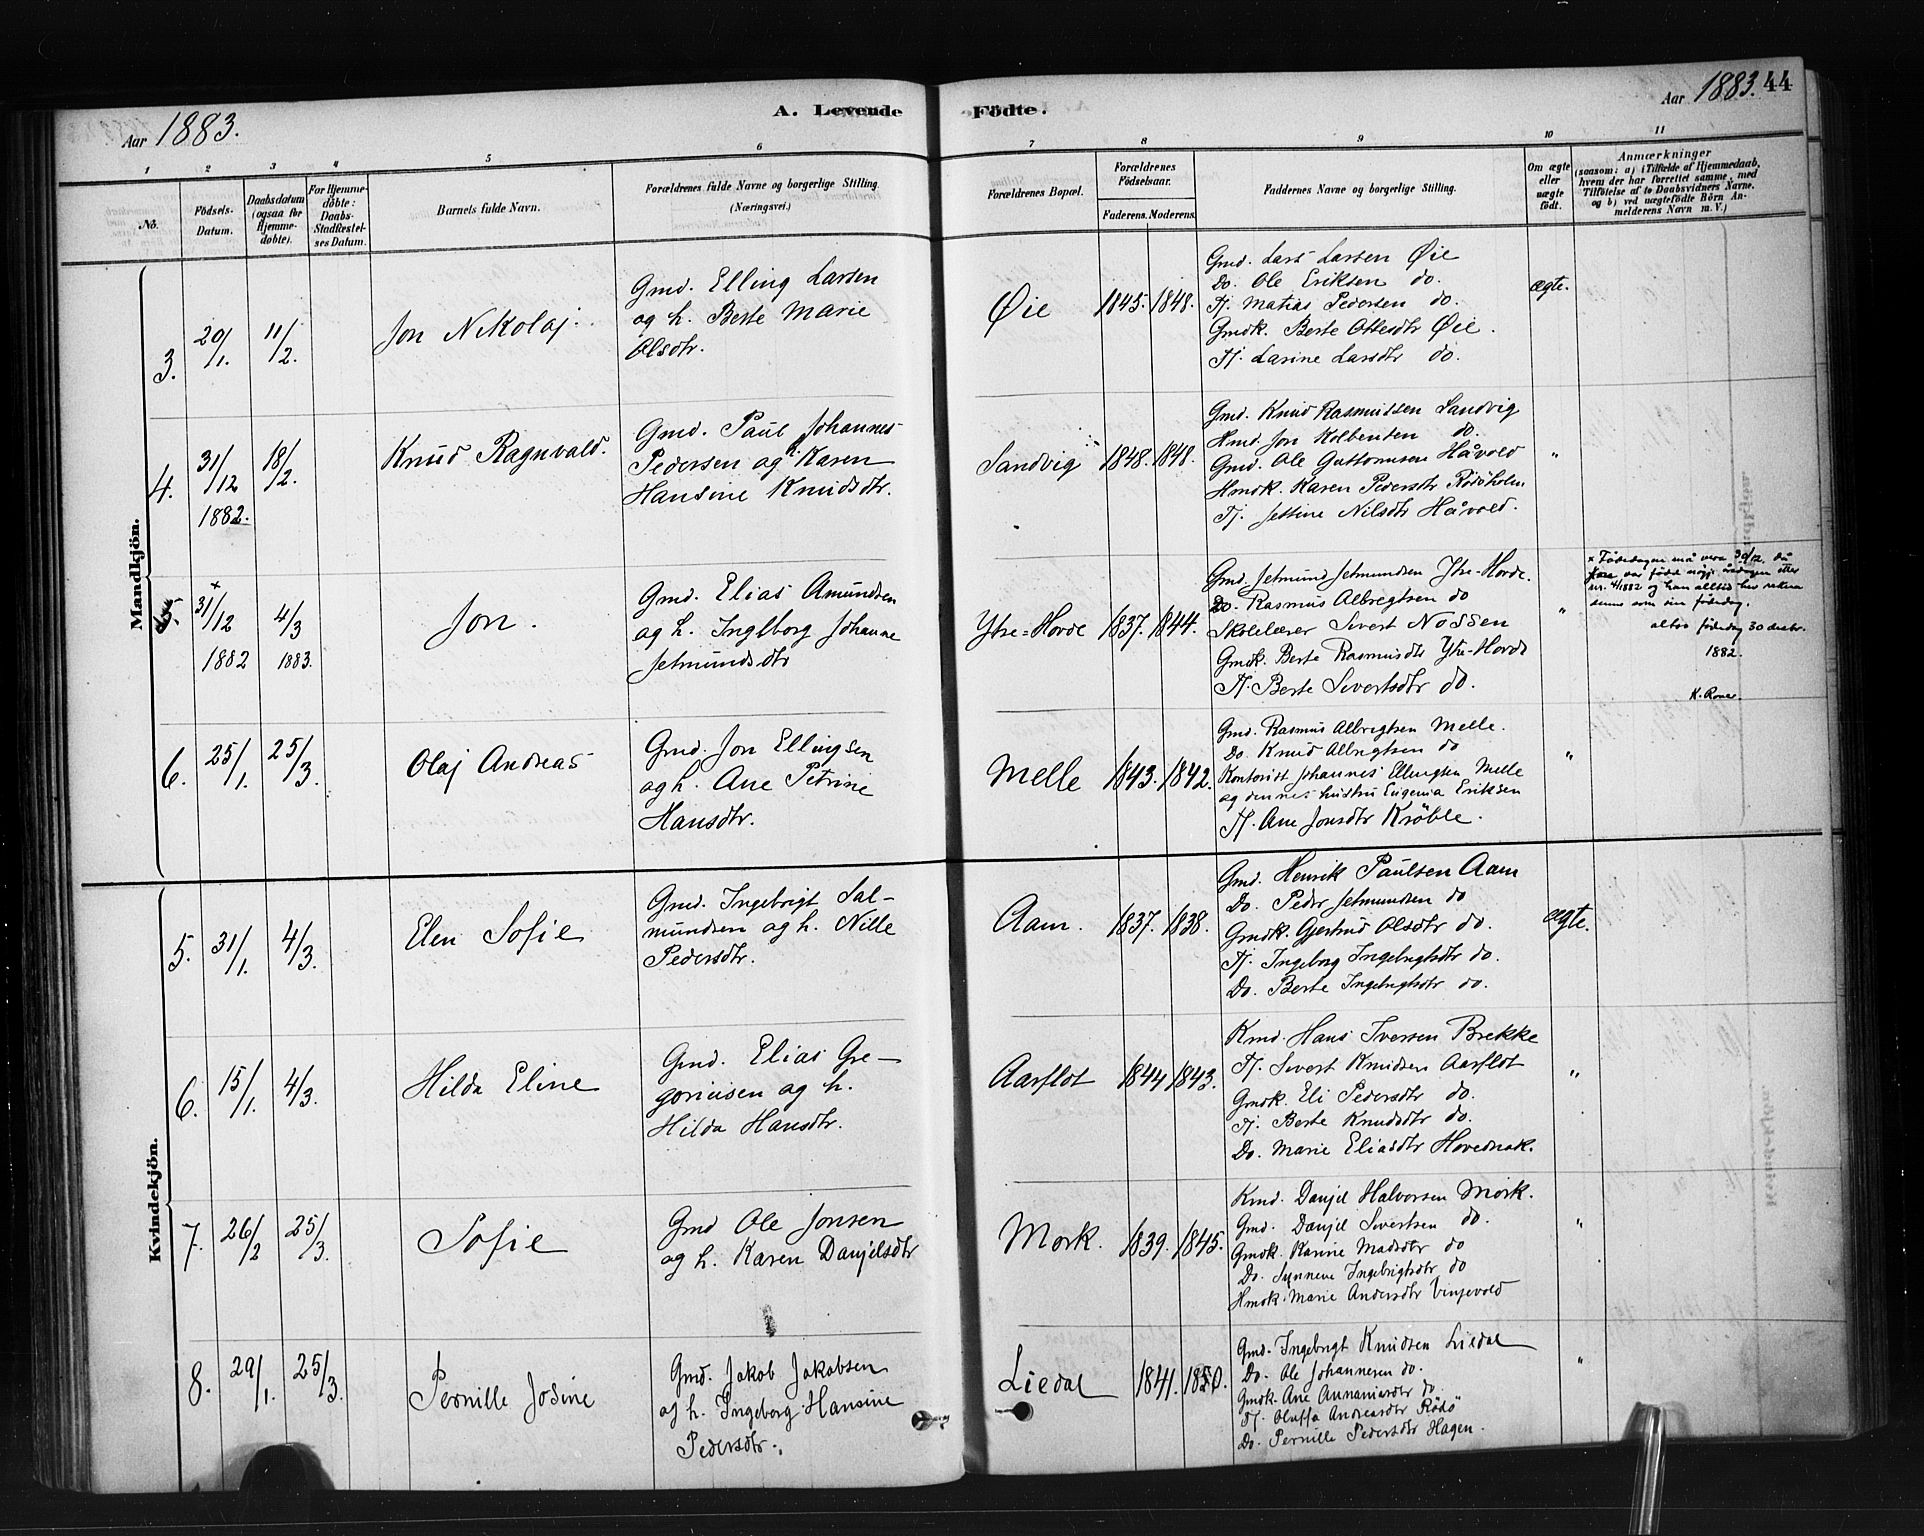 Aar 1883.
A. Levende Födte.
Aar 1883. 44
1 2 3 4 5 6 7 8 9 10 11
No.
Födsels-Datum.
Daabsdatum (ogsaa for Hjemme-döbte).
For Hjemme-döbte: Daabs-Stadfæstel-ses Datum.
Barnets fulde Navn.
Forældrenes fulde Navne og borgerlige Stilling.
(Næringsvei.)
Forældrenes Bopæl.
Forældrenes Födselsaar.
Faderens. Moderens.
Faddernes Navne og borgerlige Stilling.
Om ægte eller uægte födt.
Anmærkninger
(saasom: a) i Tilfælde af Hjemmedaab,
hvem der har forrettet samme, med
Tilföielse af to Daabsvidners Navne.
og b) ved uægtefödte Börn An-
melderens Navn m. V.)
Mandkjön.
3. 20/1. 11/2. Jon Nikolaj.
Gmd. Elling Larsen
og h. Berte Marie
Olsdtr.
Øie 1845. 1848.
Gmd. Lars Larsen Øie
Do. Ole Eriksen do.
Tj. Matias Pedersen do.
Gmdk. Berte Ottesdtr Øie.
Tj. Larine Larsdtr do.
ægte.
4. 31/12 1882. 18/2. Knud Ragnvald.
Gmd. Paul Johannes
Pedersen og Karen
Hansine Knudsdtr.
Sandvig 1848. 1848.
Gmd. Knud Rasmussen Sandvig
Hmd. Jon Kolbensen do.
Gmd. Ole Guttormsen Håvold
Hmdk. Karen Pedersdtr Rödöholm
Tj. Jettine Nilsdtr Håvold.
"
× 31/12 1882 4/3 1883. Jon.
Gmd. Elias Amundsen
og h. Inglborg Johanne
Jetmundsdtr
Ytre-Hovde 1837. 1844.
Gmd. Jetmund Jetmundsen Ytre-Hovde.
Do. Rasmus Albregtsen do
Skolelærer Sivert Nossen
Gmdk. Berte Rasmusdtr Ytre-Hovde
Tj. Berte Sivertsdtr do.
"
× Fødedagen må vera 30/12, då
var fødd dagen etter
nr. 4/1882 og han alltid hev rekna
denne som sin fødedag.
altso fødedag 30 desbr.
1882.
K. Rover.
6. 25/1. 25/3. Olaj Andreas
Gmd. Jon Ellingsen
og h. Ane Petrine
Hansdtr.
Melle 1843. 1842.
Gmd. Rasmus Albregtsen Melle.
Do. Knud Albregtsen do
Kontorist Johannes Ellingsen Melle
og dennes hustru Eugenia Eriksen
Tj. Ane Jonsdtr Kröble.
"
Kvindekjön.
5. 31/1. 4/3. Elen Sofie
Gmd. Ingebrigt Sal-
mundsen og h. Nille
Pedersdtr.
Aam. 1837. 1838.
Gmd. Henrik Paulsen Aam
Do. Peder Jetmundsen do
Gmdk. Gjertrud Olsdtr do.
Tj. Ingeborg Ingebrigtsdtr do.
Do. Berte Ingebrigtsdtr do.
ægte.
6. 15/1. 4/3. Hilda Eline
Gmd. Elias Gre-
goriusen og h.
Hilda Hansdtr.
Aarflot 1844 1843.
Kmd. Hans Iversen Brekke
Tj. Sivert Knudsen Aarflot
Gmdk. Eli Pedersdtr do.
Tj. Berte Knudsdtr do.
Do. Marie Eliasdtr Hovednak.
"
7. 26/2 25/3. Sofie
Gmd Ole Jonsen
og h. Karen Danjelsdtr
Mork. 1839. 1845.
Kmd. Danjel Halvorsen Mork.
Gmd. Danjel Sivertsen do.
Gmdk. Karine Madsdtr do
Do. Synneve Ingebrigtsdtr do
Hmdk. Marie Andersdtr Vinjevold
"
8. 29/1. 25/3. Pernille Josine
Gmd. Jakob Jakobsen
og h. Ingeborg Hansine
Pedersdtr.
Liedal 1841. 1850.
Gmd. Ingebrigt Knudsen Liedal
Do. Ole Johannesen do.
Gmdk. Ane Annaniasdtr do
Tj. Oluffa Andreasdtr Rödö
Do. Pernille Pedersdtr Hagen.
"